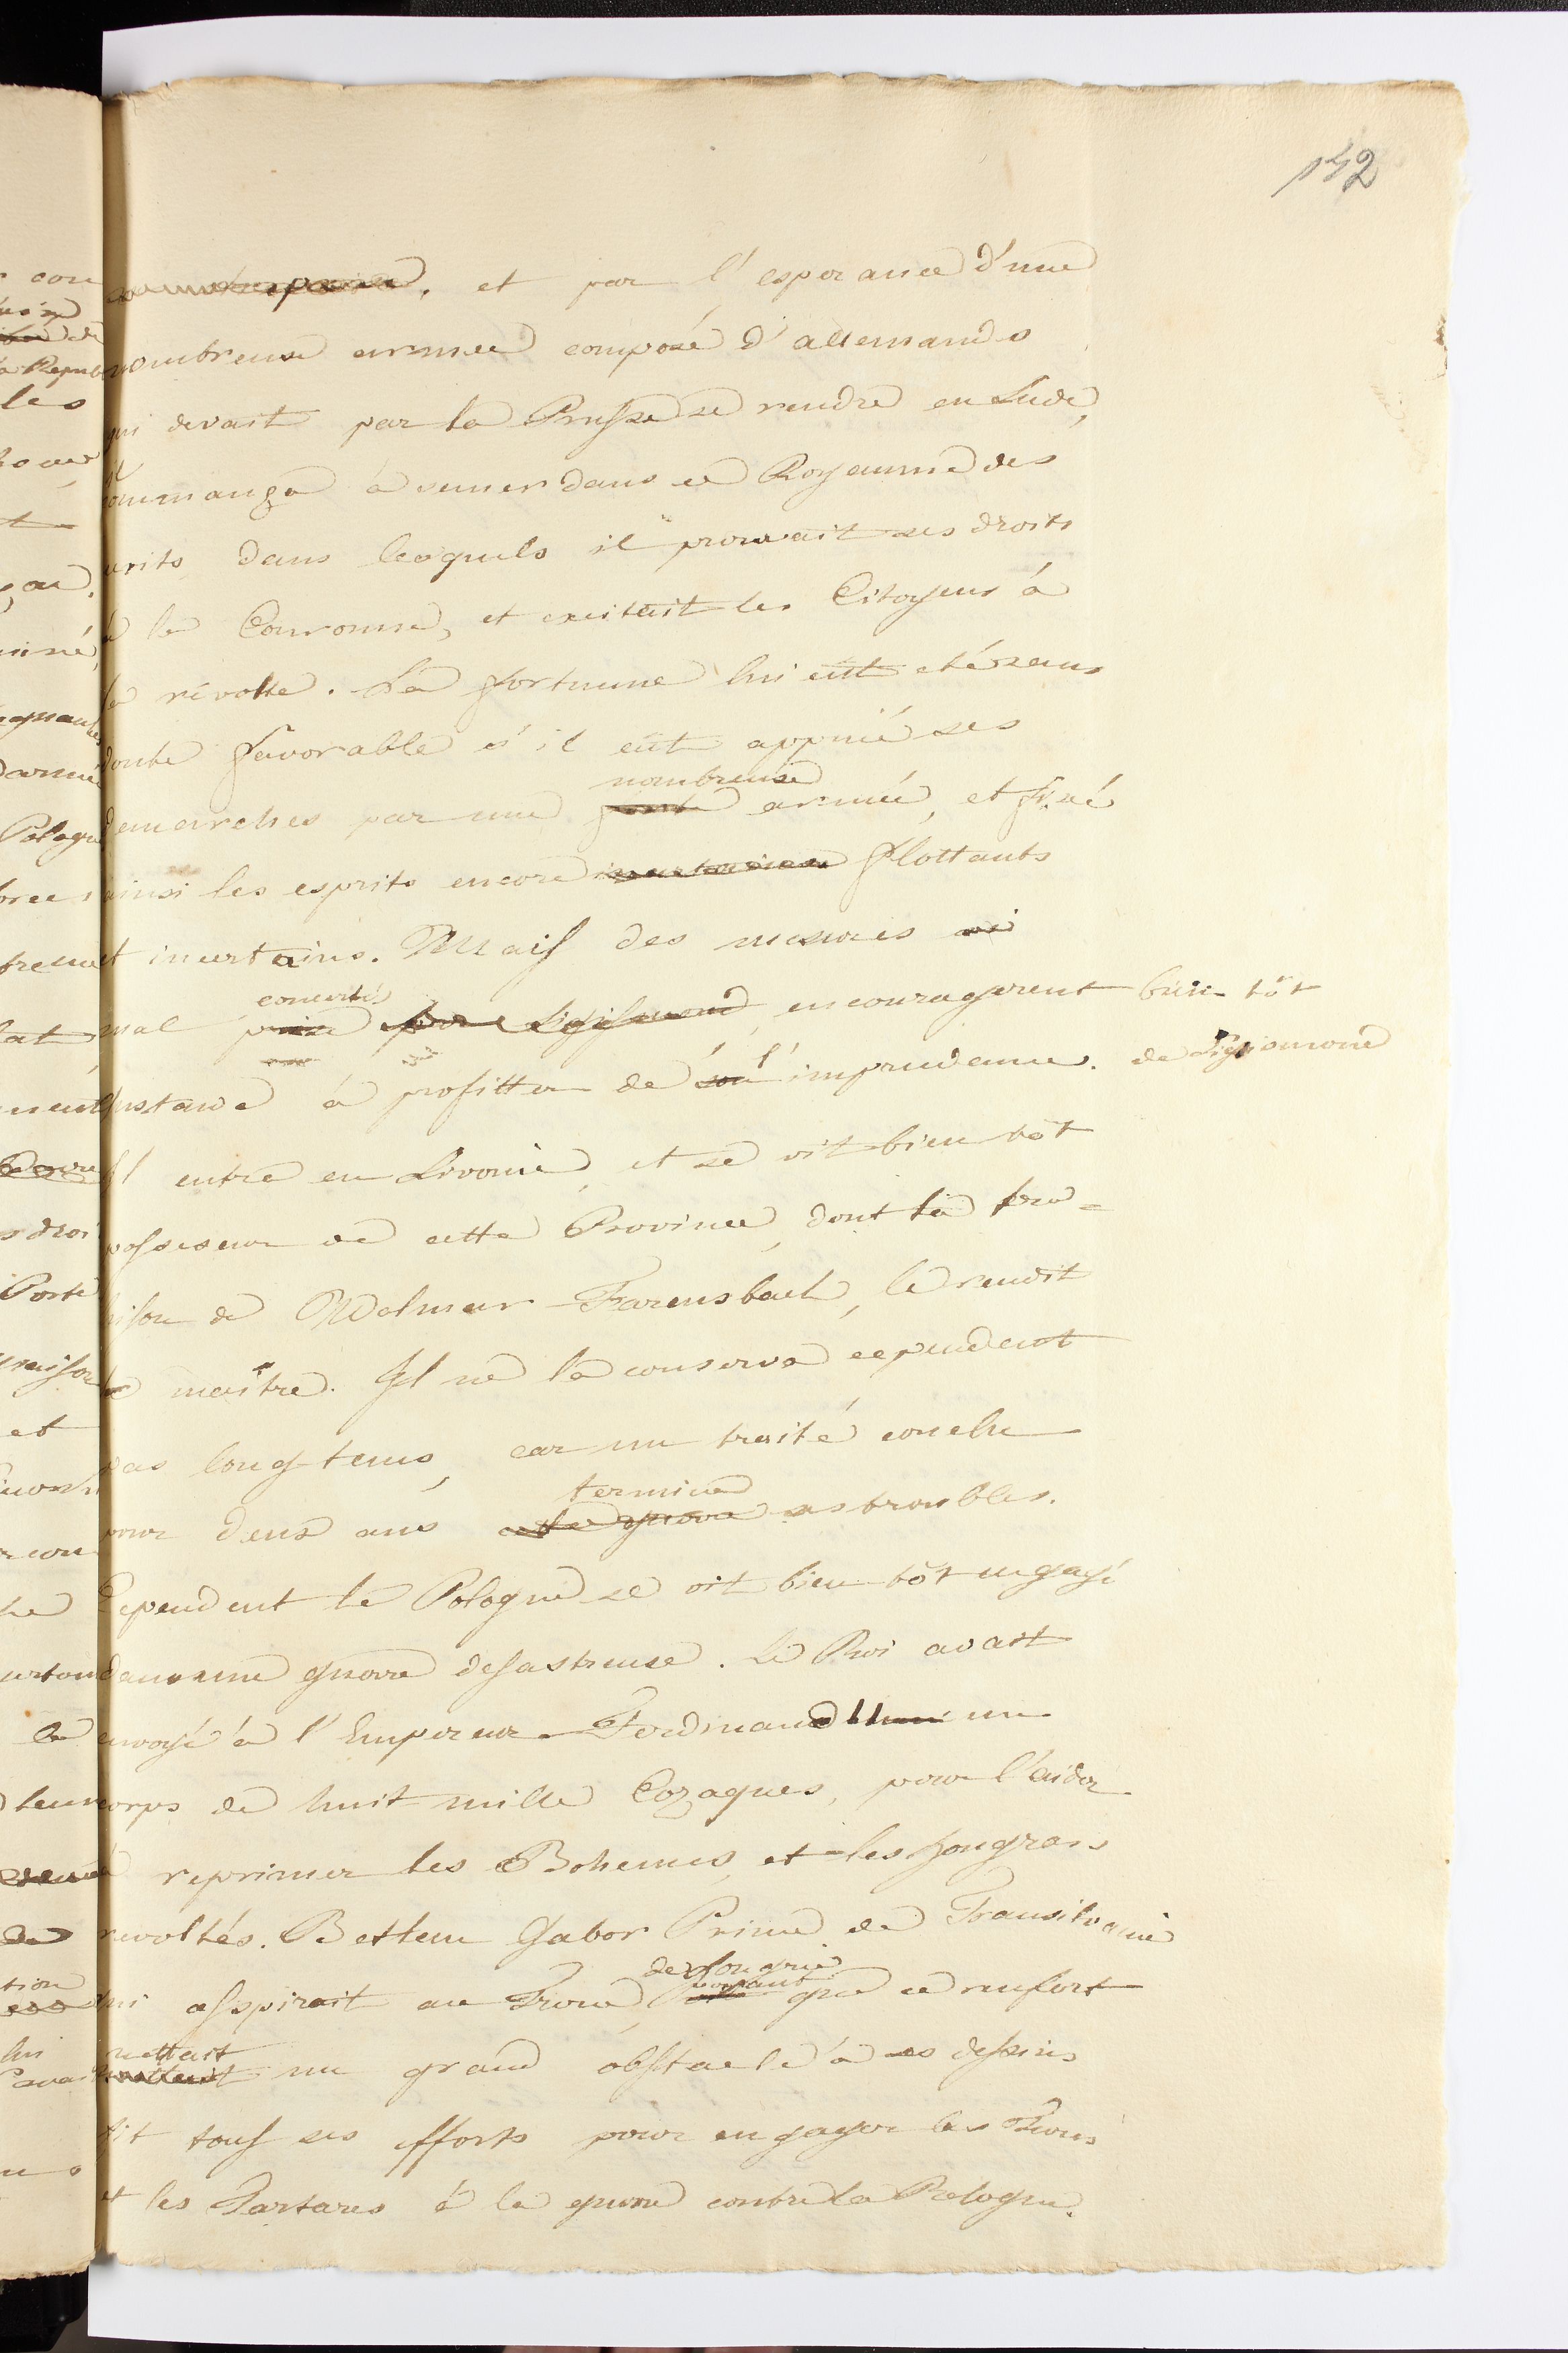 142
et par l'esperance d'une
nombreuse armée composé d'allemands
qui devait par la Prusse se rendre en Suede,
il
commança à semer dans ce Royaume des
ecrits dans lesquels il prouvait ses droits
à la Couronne, et excitait les Citoyens à
la révolte. La fortune lui eût eté sans
doute favorable s'il eût appuié ses
nombreuse
demarches par une forte armée, et fixé
ainsi les esprits encore incertains flottants
et incertains. Mais des mesures si
concertés
mal prise par Sigismond, encouragerent bien-tôt
Gustave à profitter de son l'imprudence. de Sigismond
Il entre en Livonie, et se vit bien tôt
possesseur de cette Province, dont la tra=
hison de Wolmar Farensbach, le rendit
le maître. Il ne la conserva cependent
pas long-tems, car un traité conclu
termina
pour deux ans cette guerre ces troubles.
Cependent la Pologne se vit bien-tôt engagé
dans une guerre desastreuse. Le Roi avait
envoyé à l'Empereur Ferdinand II un
corps de huit mille Cozaques, pour l'aider
à reprimer les Bohemes, et les Hongrois
revoltés. Betlem Gabor Prince de Transilvanie
de Hongrie
voyant
qui asspirait au Trone, que ce renfort
mettait
mettait un grand obstacle à ses dessins
fit tous ses efforts pour engager les Turcs
et les Tartares à la guerre contre la Pologne.